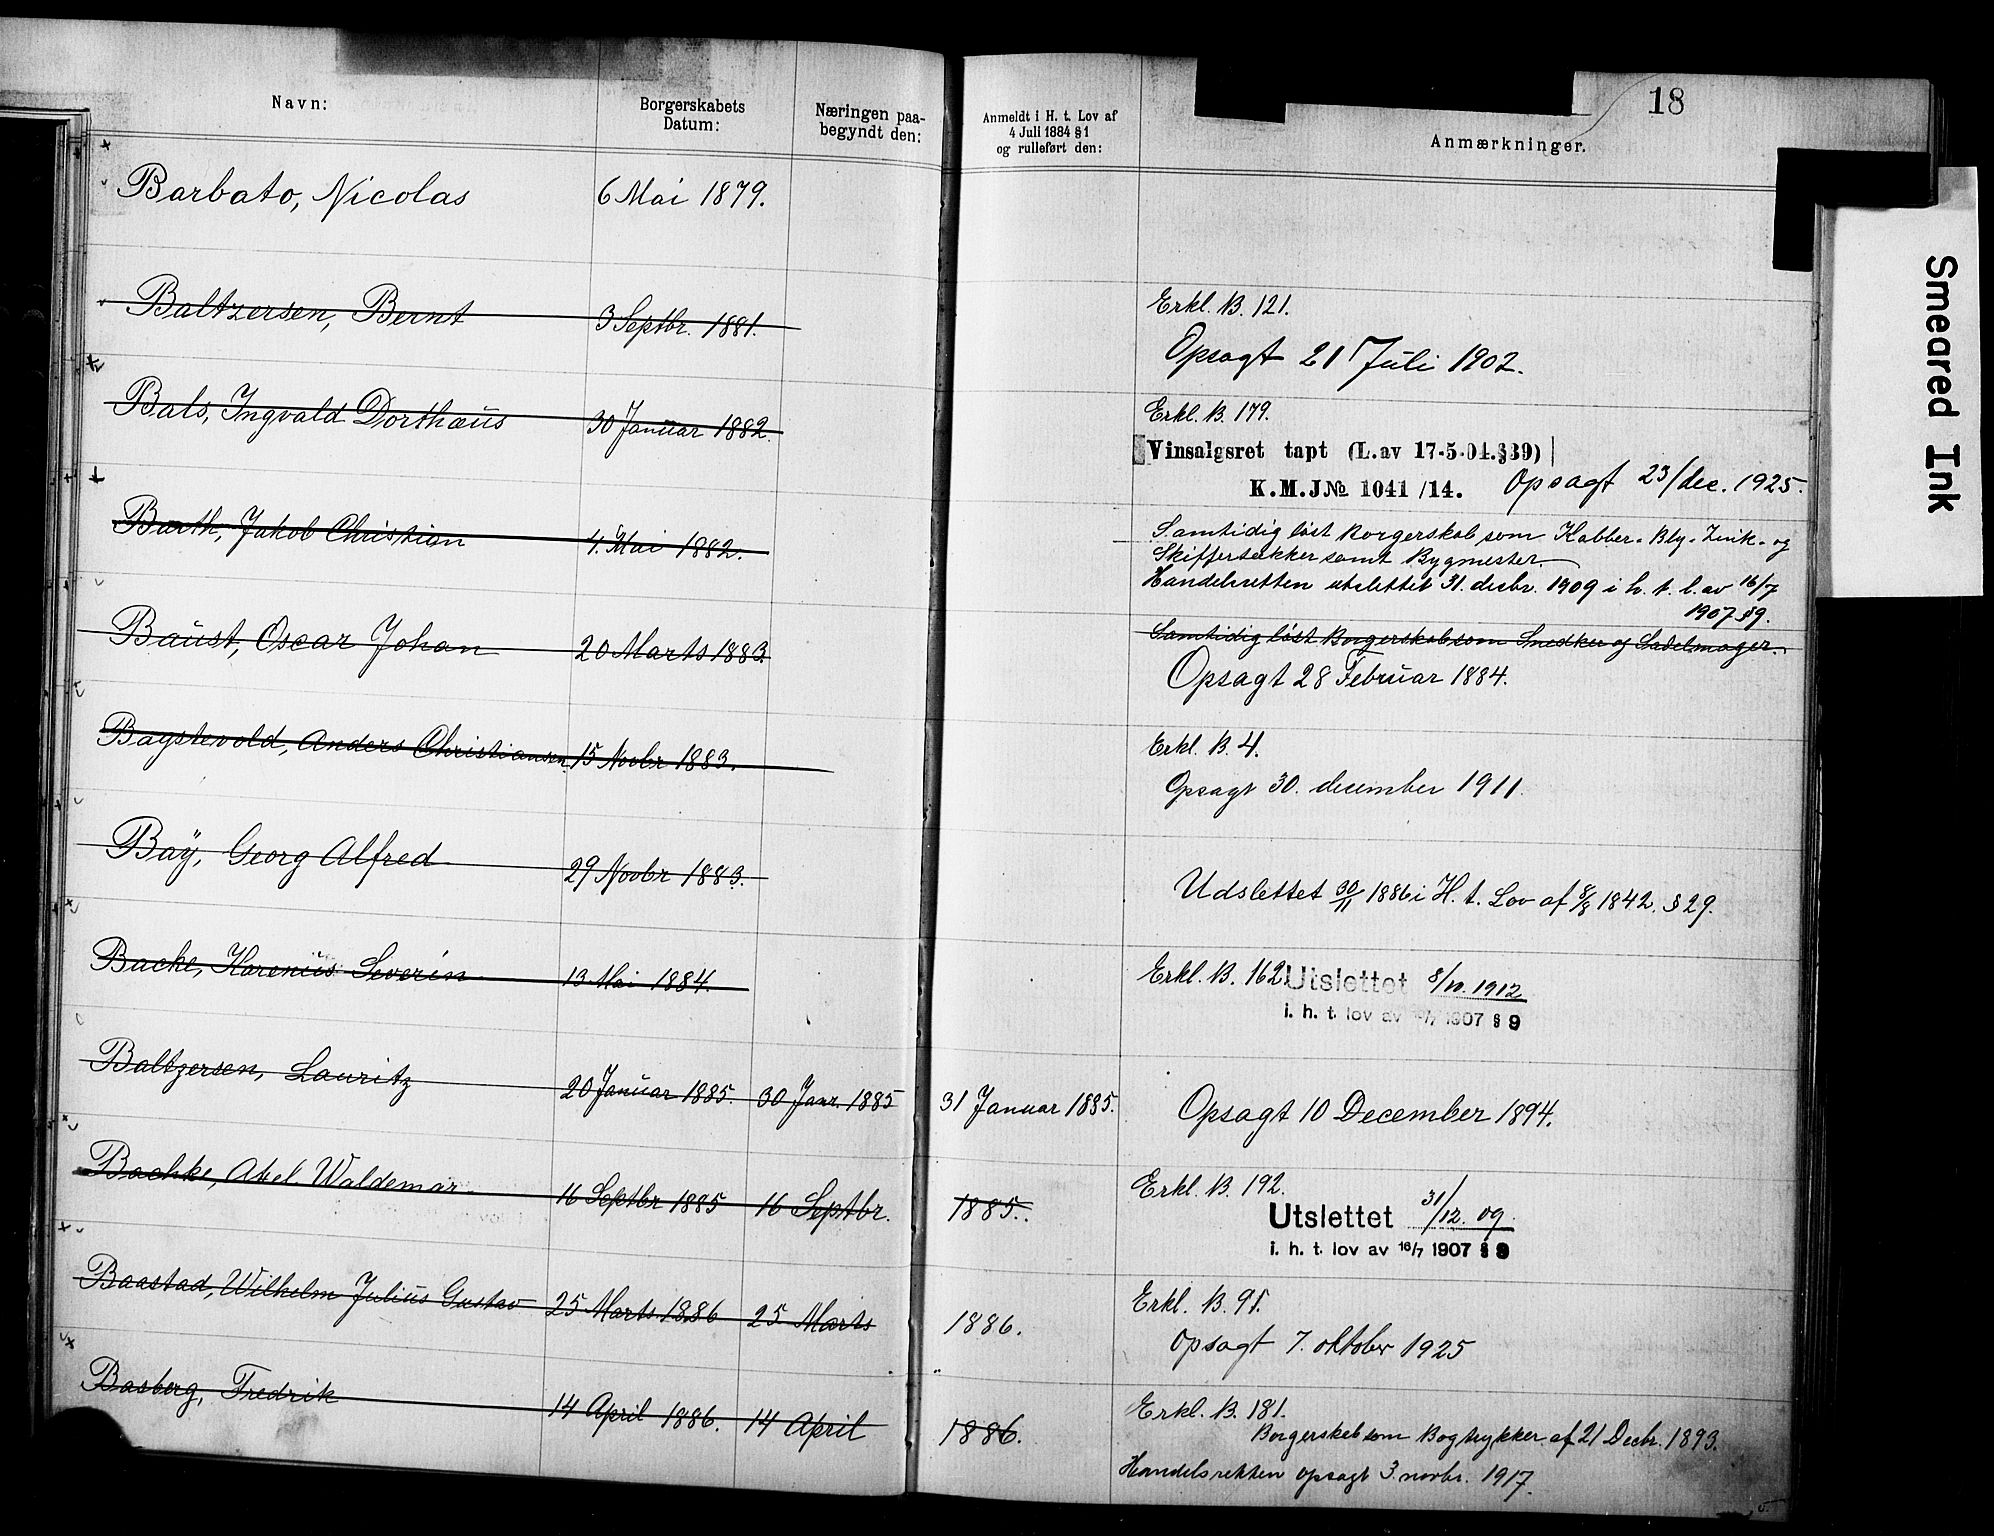 18
Navn:
Borgerskabets
Datum:
Næringen paa-
begyndt den:
Anmeldt i H. t. Lov af
4 Juli 1884 § 1
og rulleført den:
Anmærkninger.
Barbato, Nicolas 6 Mai 1879.
Baltzersen, Bernt 3 Septbr. 1881.
Erkl. B. 121.
Opsagt 21 Juli 1902.
Bals, Ingvald Dorthæus 30 Januar 1882.
Erkl. B. 179.
Vinsalgsret tapt (L. av 17-5-04. §39)
K. M. J№ 1041 /14. Opsagt 23/dec. 1925.
Barth, Jakob Christian 4. Mai 1882.
Samtidig løst Borgerskab som Kobber- Bly- Zink- og
Skiffertækker samt Bygmester.
Handelsretten utslettet 31. decbr. 1909 i h. t. l. av 16/7
1907 § 9.
Baust, Oscar Johan 20 Marts 1883.
Samtidig løst Borgerskab som Snedker og Sadelmager.
Opsagt 28 Februar 1884.
Baystevold, Anders Christiansen 15 Novbr 1883.
Erkl. B. 4.
Opsagt 30. december 1911.
Baÿ, Georg Alfred 29 Novbr 1883.
Udslettet 30/11 1886 i H. t. Lov af 8/8 1842. § 29.
Backe, Karenius Severin 13 Mai 1884.
Erkl. B. 162. Utslettet 8/10. 1912
i. h. t. lov av 16/7 1907 § 9
Baltzersen, Lauritz 20 Januar 1885. 30 Janr. 1885 31 Januar 1885.
Opsagt 10 December 1894.
Bachke, Axel Waldemar 16 Septbr 1885 16 Septbr. 1885.
Erkl. B. 192.
Utslettet 31/12. 09.
i. h. t. lov av 16/7 1907 § 9
Baastad, Wilhelm Julius Gustav 25 Marts 1886 25 Marts 1886.
Erkl. B. 91.
Opsagt 7. oktober 1925
Basberg, Fredrik 14 April 1886. 14 April 1886.
Erkl. B. 181.
Borgerskab som Bogtrykker af 21 Decbr. 1893.
Handelsretten opsagt 3. novbr. 1917.
Smeared Ink